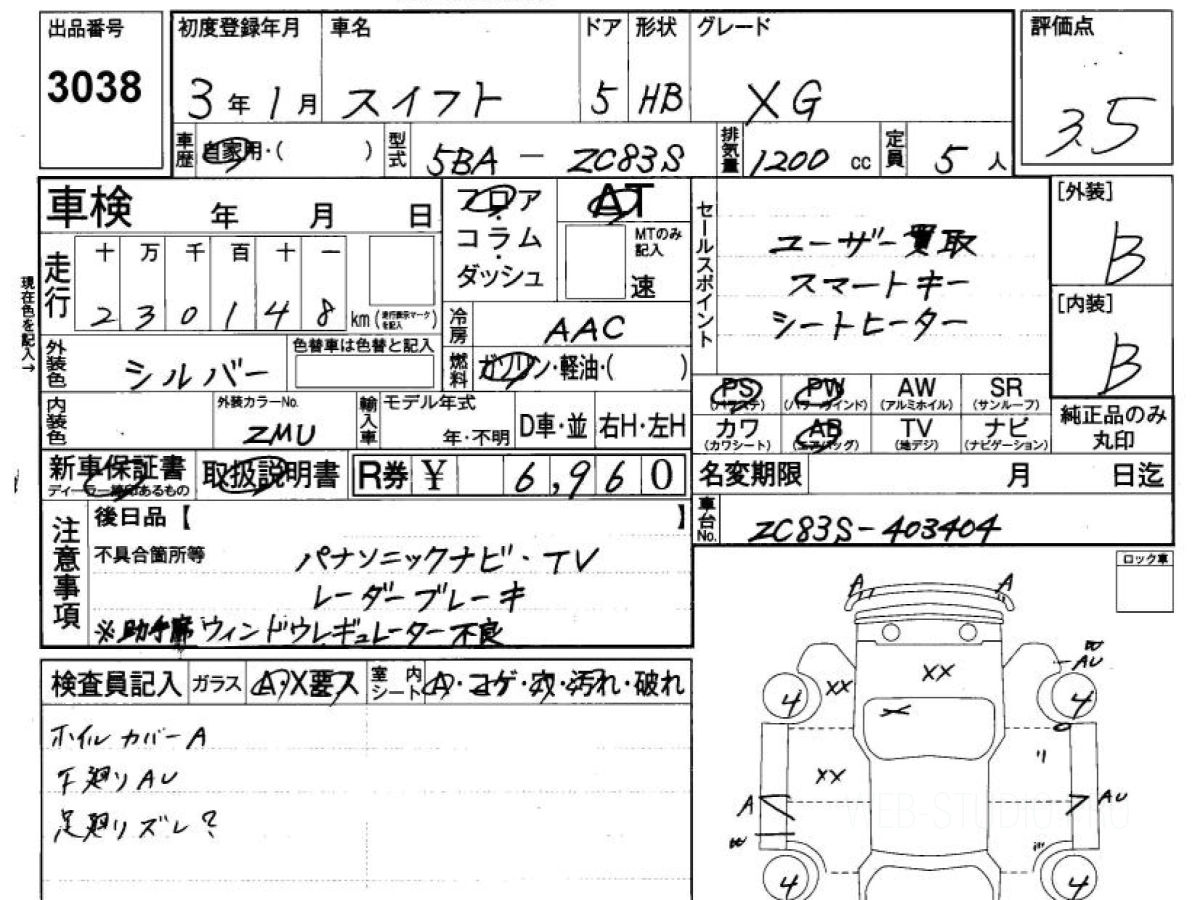 出品番号 初度登録年月 車名 ドア 形状 グレード 評価点
3038 3年 1月 スイフト 5 HB XG 3.5
車歴 自家用・( ) 型式 5BA - ZC83S 排気量 1200 cc 定員 5 人
車検 年 月 日
フロア AT
コラム MTのみ記入
ダッシュ 速
現在色を記入→
走行 十 万 千 百 十 一
2 3 0 1 4 8 km (走行表示マークを記入)
冷房 AAC
外装色 シルバー 色替車は色替と記入
燃料 ガソリン・軽油・( )
内装色 外装カラーNo. ZMU 輸入車 モデル年式 年・不明 D車・並 右H・左H
セールスポイント
ユーザー買取
スマートキー
シートヒーター
[外装]
B
[内装]
B
PS (パワステ) PW (パワーウインド) AW (アルミホイル) SR (サンルーフ)
カワ (カワシート) AB (エアバッグ) TV (地デジ) ナビ (ナビゲーション)
純正品のみ丸印
新車保証書 ディーラー捺印あるもの 取扱説明書 R券 ¥ 6,960
名変期限 月 日迄
車台No. ZC83S-403404
注意事項
後日品【 】
不具合箇所等 パナソニックナビ・TV
レーダーブレーキ
※助手席ウィンドウレギュレーター不良
ロック車
検査員記入 ガラス A・X要ス 室内シート A・コゲ・穴・汚れ・破れ
ホイルカバーA
下廻りAU
足廻りズレ?
A A
XX
AU
XX
4 4
X
XX
A AU
4 4
WEB-STUDIO.PRO